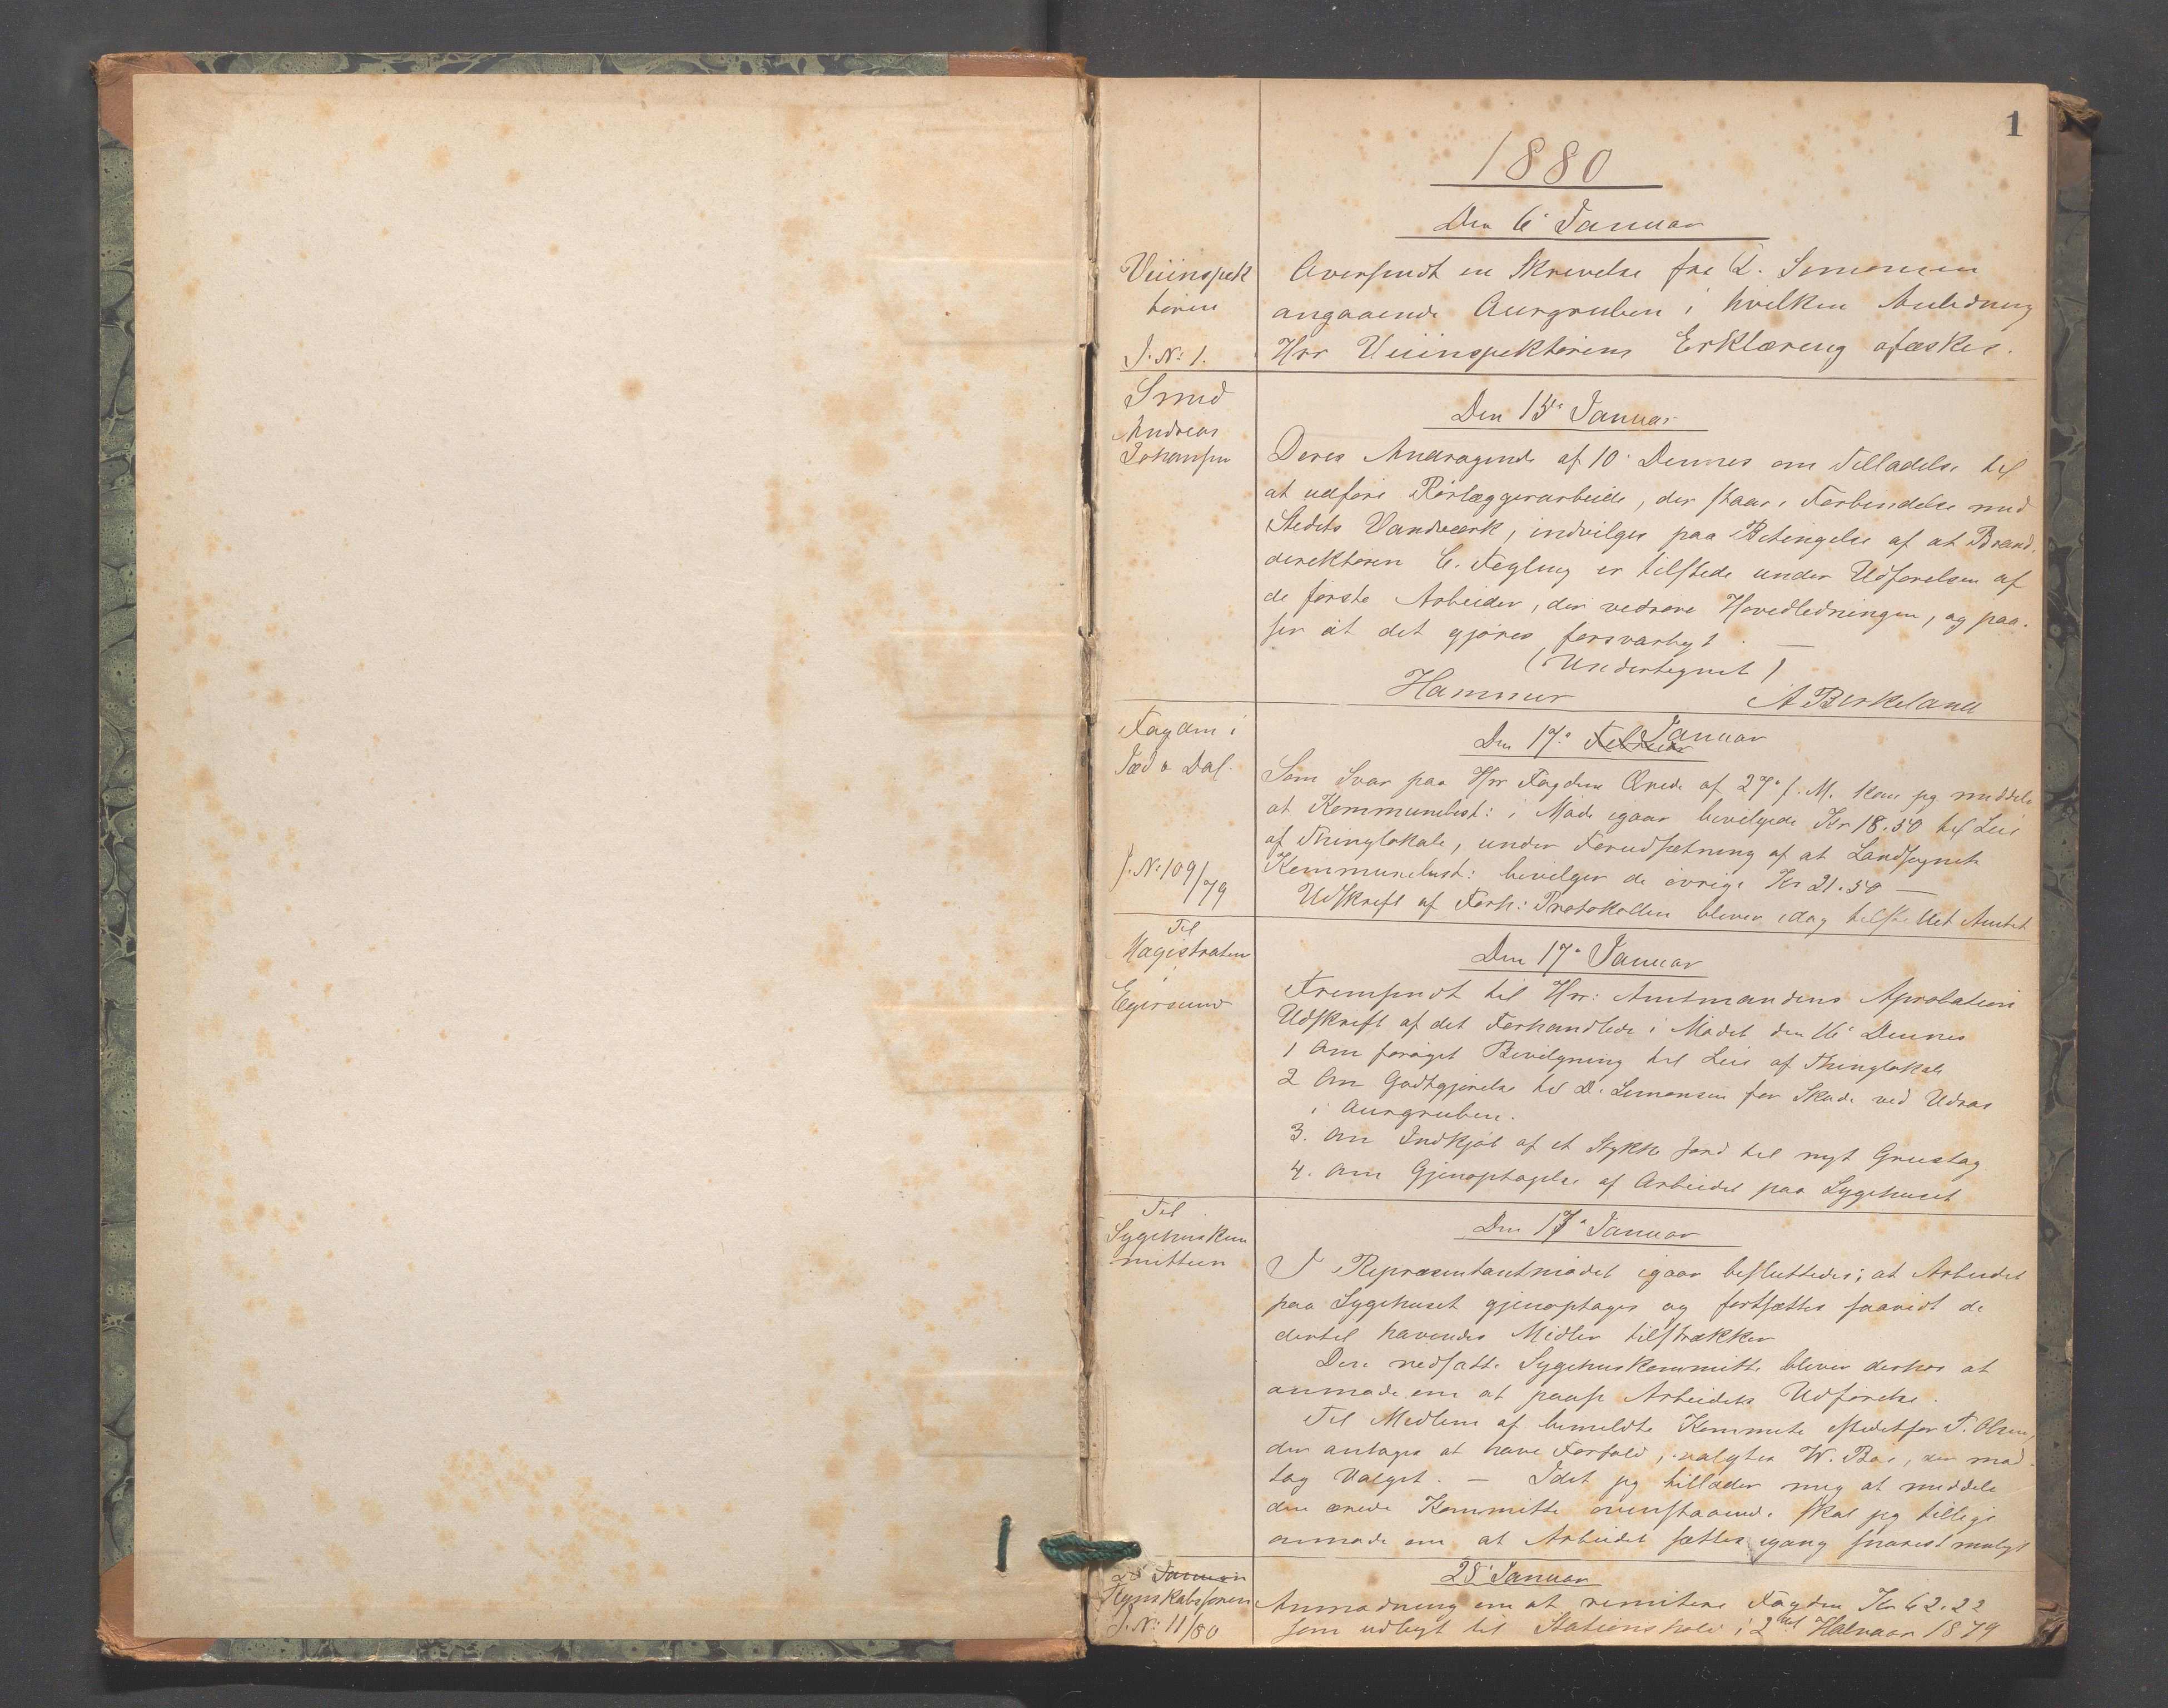 1
1880
Den 6' Januar
Veiinspek
tøren
J. N: 1.
Oversendt en Skrivelse fra D. Simonsen
angaaende Aurgruben i hvilken Anledning
Hrr Veiinspektørens Erklæring afæskes.
Smed
Andreas
Johansen
Den 15de Januar
Deres Andragende af 10' Dennes om Tilladelse til
at udføre Rørlæggerarbeide, der staar i Forbindelse med
Stedets Vandværk, indvilges paa Betingelse af at Brand-
direktøren C. Fegling er tilstede under Udførelsen af
de første Arbeider, der vedrøre Hovedledningen, og paa-
ser at det gjøres forsvarligt. —
(Undertegnet)
Hammer A Birkeland
Fogden i
Jæd o Dal.
J. N: 109/79
Den 17' Februar Januar
Som Svar paa Hrr Fogdens Ærede af 27' f. M. kan jeg meddele
at Kommunebest: i Møde igaar bevilgede Kr 18.50 til Leie
af Thinglokale, under Forudsætning af at Landsognets
Kommunebest: bevilger de øvrige Kr 21.50 —
Udskrift af Forh: Protokollen bliver idag tilstillet Amtet
Til
Magistraten
i
Egersund
Den 17' Januar
Fremsendt til Hrr: Amtmandens Aprobation
Udskrift af det Forhandlede i Mødet den 16' Dennes
1 Om forøget Bevilgning til Leie af Thinglokale
2 Om Godtgjørelse til D. Simonsen for Skade ved Udras
i Aurgruben.
3. Om Indkjøb af et Stykke Jord til nyt Grustag
4. Om Gjenoptagelse af Arbeidet paa Sygehuset
Til
Sygehuskom
mitteen
Den 17' Januar
I Repræsentantmødet igaar besluttedes; at Arbeidet
paa Sygehuset gjenoptages og fortsættes saavidt de
dertil havendes Midler tilstrækker
Den nedsatte Sygehuskommitte bliver derhos at
anmode om at paase Arbeidets Udførelse.
Til Medlem af bemeldte Kommite istedetfor T. Olsen,
der antages at have Forfald, valgtes W. Boe, der mod-
tog Valget. — Idet jeg tillader mig at meddele
den ærede Kommitte ovenstaaende skal jeg tillige
anmode om at Arbeidet sættes igang snarest muligt
28' Januar
Regnskabsføreren
J. N: 11/80
28' Januar
Anmodning om at remitere Fogden Kr 62.22
som udlagt til Stationshold i 2det Halvaar 1879